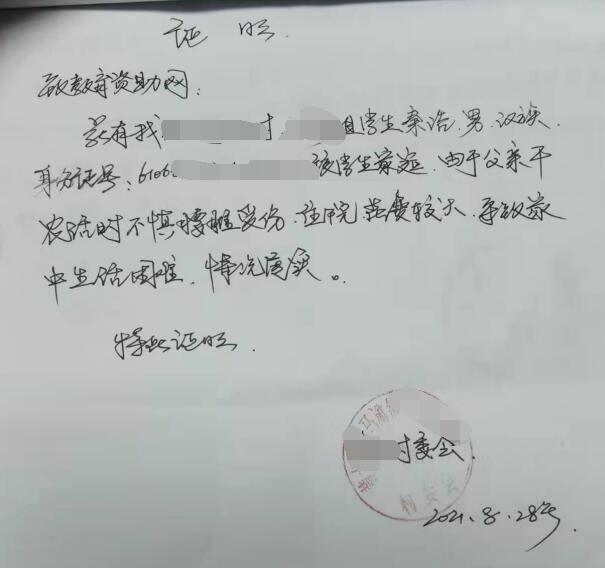 证明
致教育资助网:
兹有我 村 组学生秦浩.男.汉族.
身份证号:6106 该学生家庭.由于父亲干
农活时不慎腰腿受伤.住院花费较大.导致家
中生活困难.情况属实。
特此证明.
村委会.
村委会
2021.8.28号.